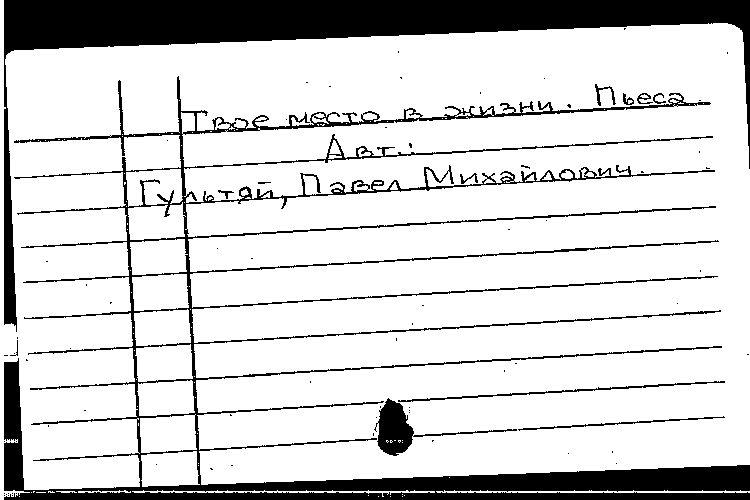 Твое место в жизни. Пьеса.
Авт.:
Гультяй, Павел Михайлович.